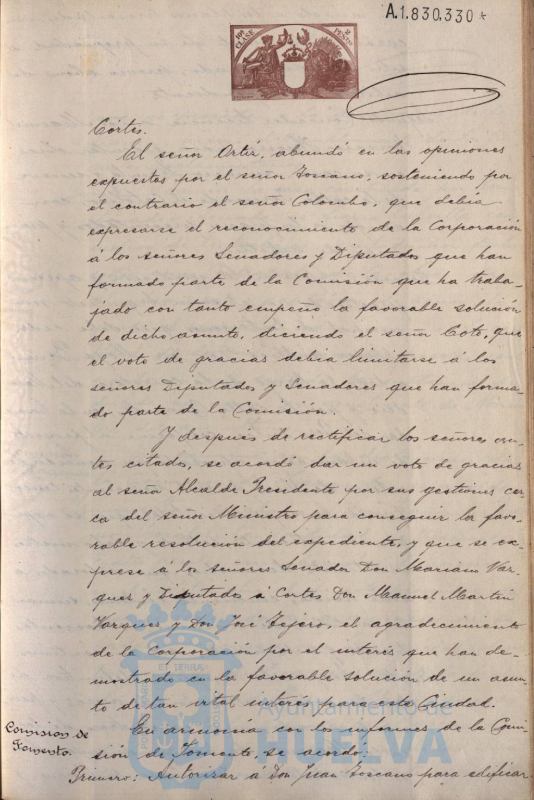 A.1.830.330*
10ª CLASE
2 PESETAS
Córtes.
El señor Ortiz, abundó en las opiniones
expuestas por el señor Toscano, sosteniendo por
el contrario el señor Colombo, que debia
expresarse el reconocimiento de la Corporación
á los señores Senadores y Diputados que han
formado parte de la Comisión que ha traba-
jado con tanto empeño la favorable solución
de dicho asunto, diciendo el señor Coto, que
el voto de gracias debia limitarse á los
señores Diputados y Senadores que han forma-
do parte de la Comisión.
Y después de rectificar los señores an-
tes citados, se acordó dar un voto de gracias
al señor Alcalde Presidente por sus gestiones cer-
ca del señor Ministro para conseguir la favo-
rable resolución del expediente, y que se ex-
prese á los señores Senador Don Mariano Vaz-
quez y Diputados á Cortes Don Manuel Martin
Vazquez y Don José Tejero, el agradecimiento
de la Corporación por el interés que han de-
mostrado en la favorable solución de un asun-
to de tan vital interés para esta Ciudad.
Comision de
Fomento.
En armonia con los informes de la Comi-
sión de Fomento, se acordó:
Primero: Autorizar á Don Juan Toscano para edificar
Ayuntamiento de
HUELVA